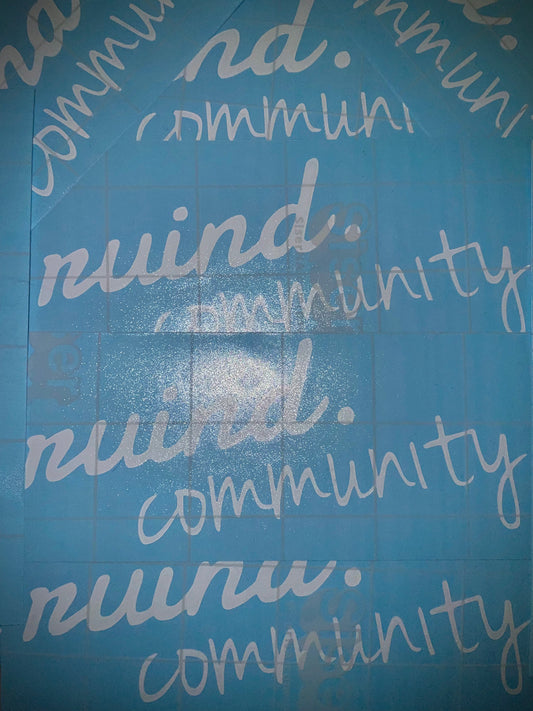 nd.
communi
ruind.
community
ruind.
community
ruind.
community